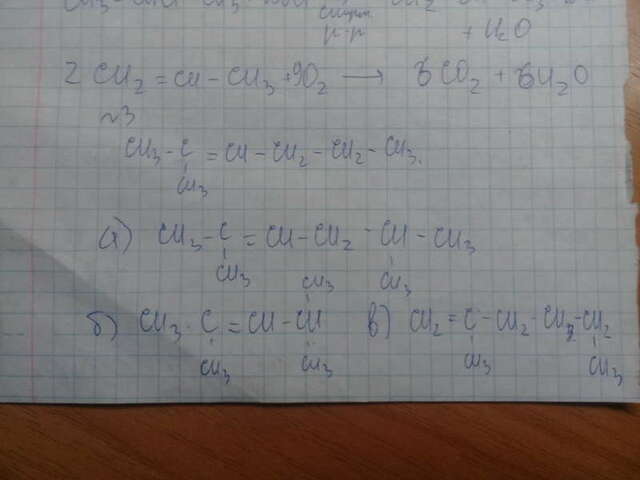 спирт.
р-р + H2O
2 CH2 = CH - CH3 + 9O2 → 6CO2 + 6H2O
~3
CH3 - C = CH - CH2 - CH2 - CH3.
CH3
а) CH3 - C = CH - CH2 - CH - CH3
CH3 CH3
CH3
б) CH3 - C = CH - CH в) CH2 = C - CH2 - CH2 - CH2
CH3 CH3 CH3 CH3